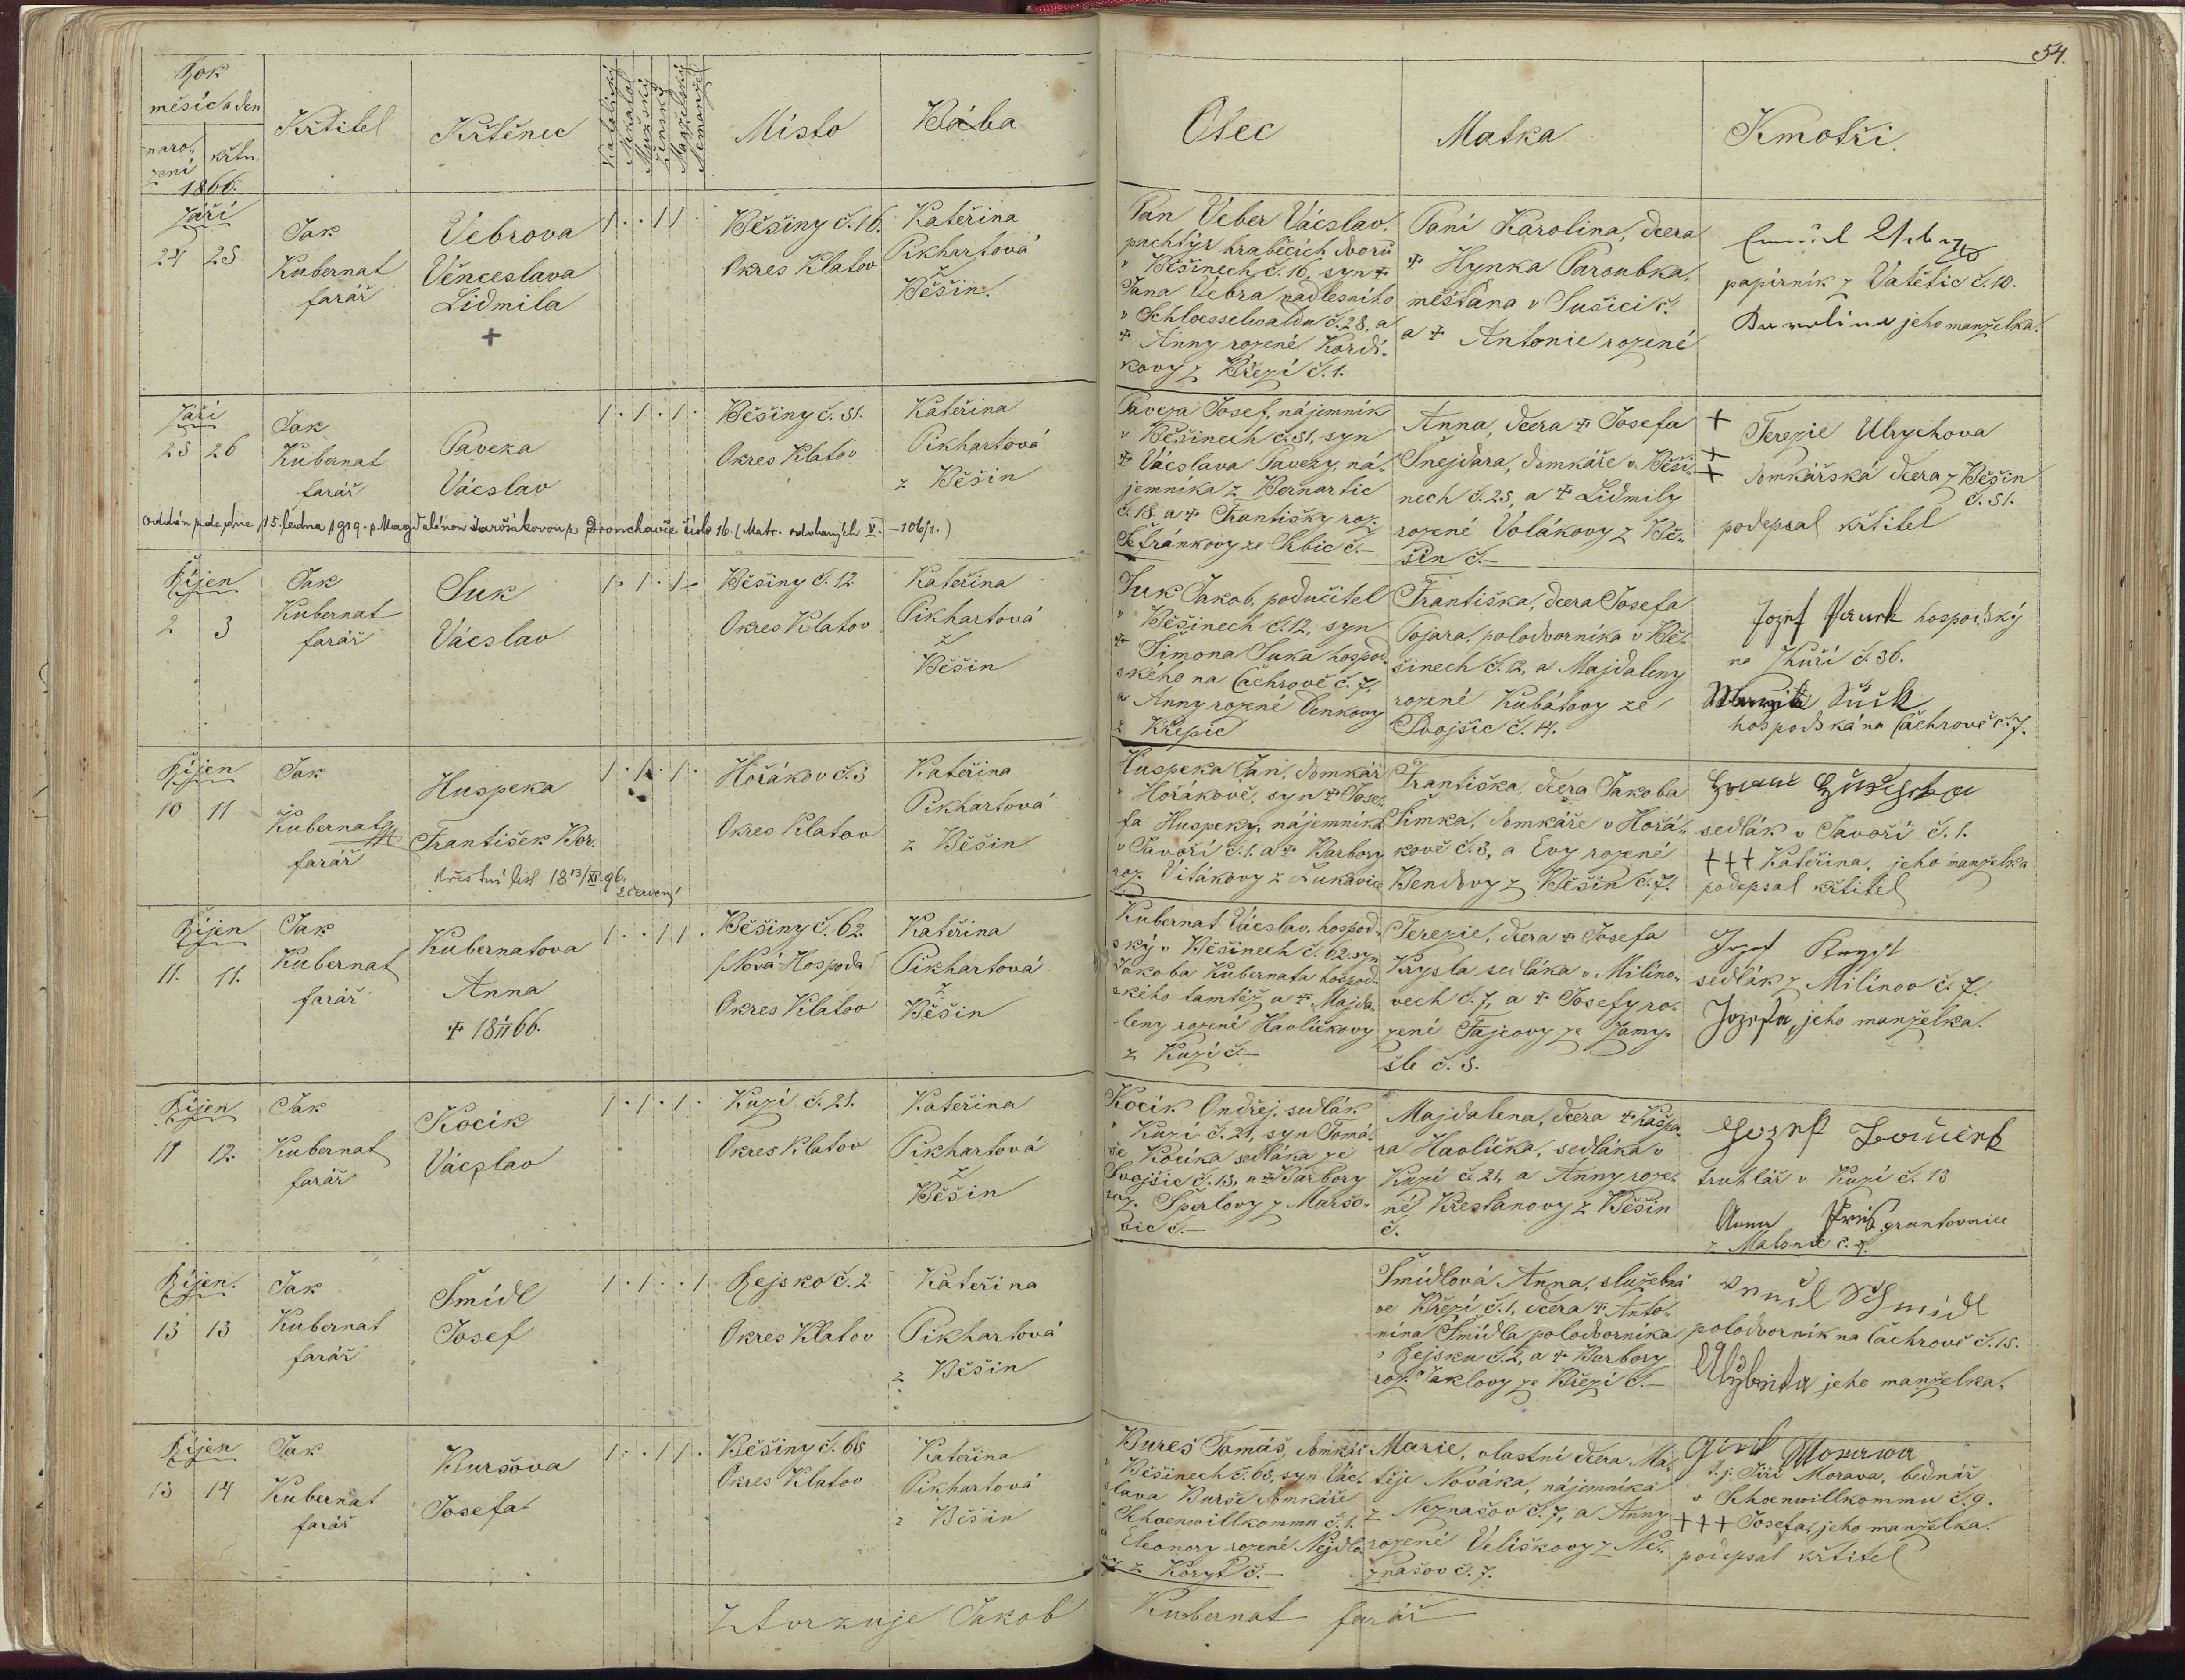 54.
Rok
měsíc a den
naro-
zení
křtu
1866.
Křtitel
Křtěnec
Katolický
Nekatol.
Mužský
Ženský
Manželský
Nemanžel.
Místo
Bába
Otec
Matka
Kmotři.
Září
24 25
Jak
Kubernat
farář
Vebrova
Věnceslava
Lidmila
+
Běšiny č. 16.
Okres Klatov
Kateřina
Pikhartová
z
Běšin.
Pan Veber Vácslav.
pachtýř hraběcích dvorů
v Běšinech č. 16, syn +
Jana Vebra nadlesního
v Schloesselwaldu č. 28. a
+ Anny rozené Kordi-
kovy z Březí č. 1.
Paní Karolina, dcera
+ Hynka Paroubka,
měšťana v Sušici č.
a + Antonie rozené
papírník z Vatětic č. 10.
Karolina jeho manželka.
Září
25 26
Jak
Kubernat
farář
Paveza
Vácslav
Běšiny č. 51.
Okres Klatov
Kateřina
Pikhartová
z Běšin
Paveza Josef, nájemník
v Běšinech č. 51, syn
+ Vácslava Pavezy, ná-
jemníka z Bernartic
č. 18. a + Františky roz.
ze Srbic č.–
Anna, dcera + Josefa
Šnejdara, domkáře v Běši-
nech č. 25, a + Lidmily
rozené Volákovy z Bě-
šin č.–
+
+
+
Terezie Ulrychova
domkářská dcera z Běšin
č. 51.
podepsal křtitel
Oddán zde dne 15. ledna 1919. s Magdalénou Jarošíkovou z číslo 16. (Matr. oddaných V. – 106/2.)
Říjen
2 3
Jak
Kubernat
farář
Suk
Vácslav
Běšiny č. 12.
Okres Klatov
Kateřina
Pikhartová
z
Běšin
Suk Jakob, podučitel
v Běšinech č. 12, syn
+ Šimona Suka hospod-
ského na Čachrově č. 7,
a Anny rozené Denkovy
z Křepic
Františka, dcera Josefa
Pojara, polodvorníka v Bě-
šinech č. 12, a Majdaleny
rozené Kubátovy ze
Svojšic č. 14.
Jozef hospodský
na Zhuří č. 36.
Suk
hospodská na Čachrově č. 7.
Říjen
10 11
Jak
Kubernat
farář
Huspeka
František Bor.
křestní list 18 13/XI. 96.
Hořákov č. 3
Okres Klatov
Kateřina
Pikhartová
z Běšin
Huspeka Jan, domkář
v Hořákově, syn + Jose-
fa Huspeky, nájemníka
v Javoří č. 1. a + Barbory
roz. Vitákovy z Lukavice
Františka, dcera Jakoba
Šimka, domkáře v Hořá-
kově č. 3, a Evy rozené
Bendovy z Běšin č. 7.
sedlák v Javoří č. 1.
+++ Kateřina, jeho manželka
podepsal křtitel
Říjen
11. 11.
Jak
Kubernat
farář
Kubernatova
Anna
+ 18 66.
Běšiny č. 62.
(Nová Hospoda)
Okres Klatov
Kateřina
Pikhartová
z
Běšin
Kubernat Vácslav, hospod-
ský v Běšinech č. 62. syn
Jakoba Kubernata hospod-
ského tamtéž a + Majda-
leny rozené Havlíčkovy
z Kuzí č.–
Terezie, dcera + Josefa
Krysla sedláka v Milino-
vech č. 7, a + Josefy ro-
zené Fajcovy ze Zamy-
šle č. 5.
sedlák z Milínov č. 7.
Jozefa, jeho manželka.
Říjen
11 12.
Jak
Kubernat
farář
Kocík
Vácslav
Kuzí č. 21.
Okres Klatov
Kateřina
Pikhartová
z
Běšin
Kocík Ondřej, sedlák
v Kuzí č. 21, syn Tomá-
še Kocíka sedláka ze
Svojšic č. 13, a + Barbory
roz. Šperlovy z Maršo-
vic č.–
Majdalena, dcera + Kašpa-
ra Havlíčka, sedláka v
Kuzí č. 21, a Anny roze-
né Křesťanovy z Běšin
č.
truhlář v Kuzí č. 13
Anna gruntovnice
z Malonic č. 4.
Říjen.
13 13
Jak
Kubernat
farář
Šmídl
Josef
Rejsko č. 2.
Okres Klatov
Kateřina
Pikhartová
z Běšin
Šmídlová Anna, služebná
ve Březí č. 1, dcera + Anto-
nína Šmídla polodvorníka
v Rejsku č. 2, a + Barbory
roz. Jaklovy ze Březí č.–
Schmidl
polodvorník na Čachrově č. 15.
Alžběta jeho manželka.
Říjen
13 14
Jak
Kubernat
farář
Buršova
Josefa
Běšiny č. 65
Okres Klatov
Kateřina
Pikhartová
z Běšin
Bureš Tomáš, domkář
v Běšinech č. 65, syn Vác-
slava Burše domkáře
v Schoenwillkommu č. 1.
a Eleonory rozené Nejdlo-
vy z Koryt č.–
Marie, vlastní dcera Ma-
těje Nováka, nájemníka
z Neznašov č. 7, a Anny
rozené Veliškovy z Ne-
znašov č. 7.
Giržik Morawa
t. j. Jiří Morava, bednář
v Schoenwillkommu č. 9.
+++ Josefa, jeho manželka.
podepsal křtitel
Ztvrzuje Jakob Kubernat farář